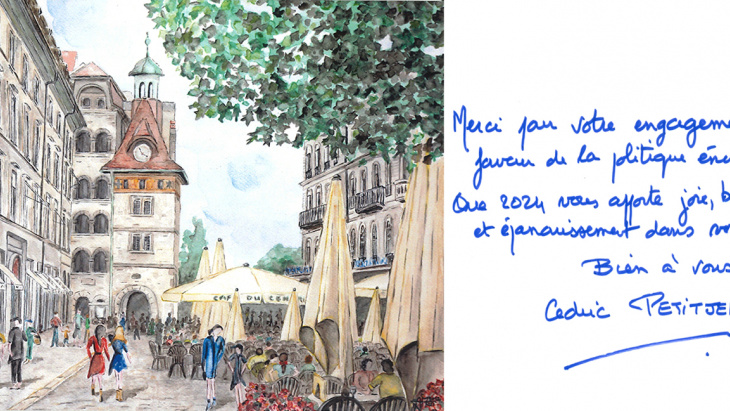 CAFE DU
Merci pour votre engageme
faveur de la politique éne
Que 2024 vous apporte joie, b
et épanouissement dans vo
Bien à vous
Cédric PETITJE